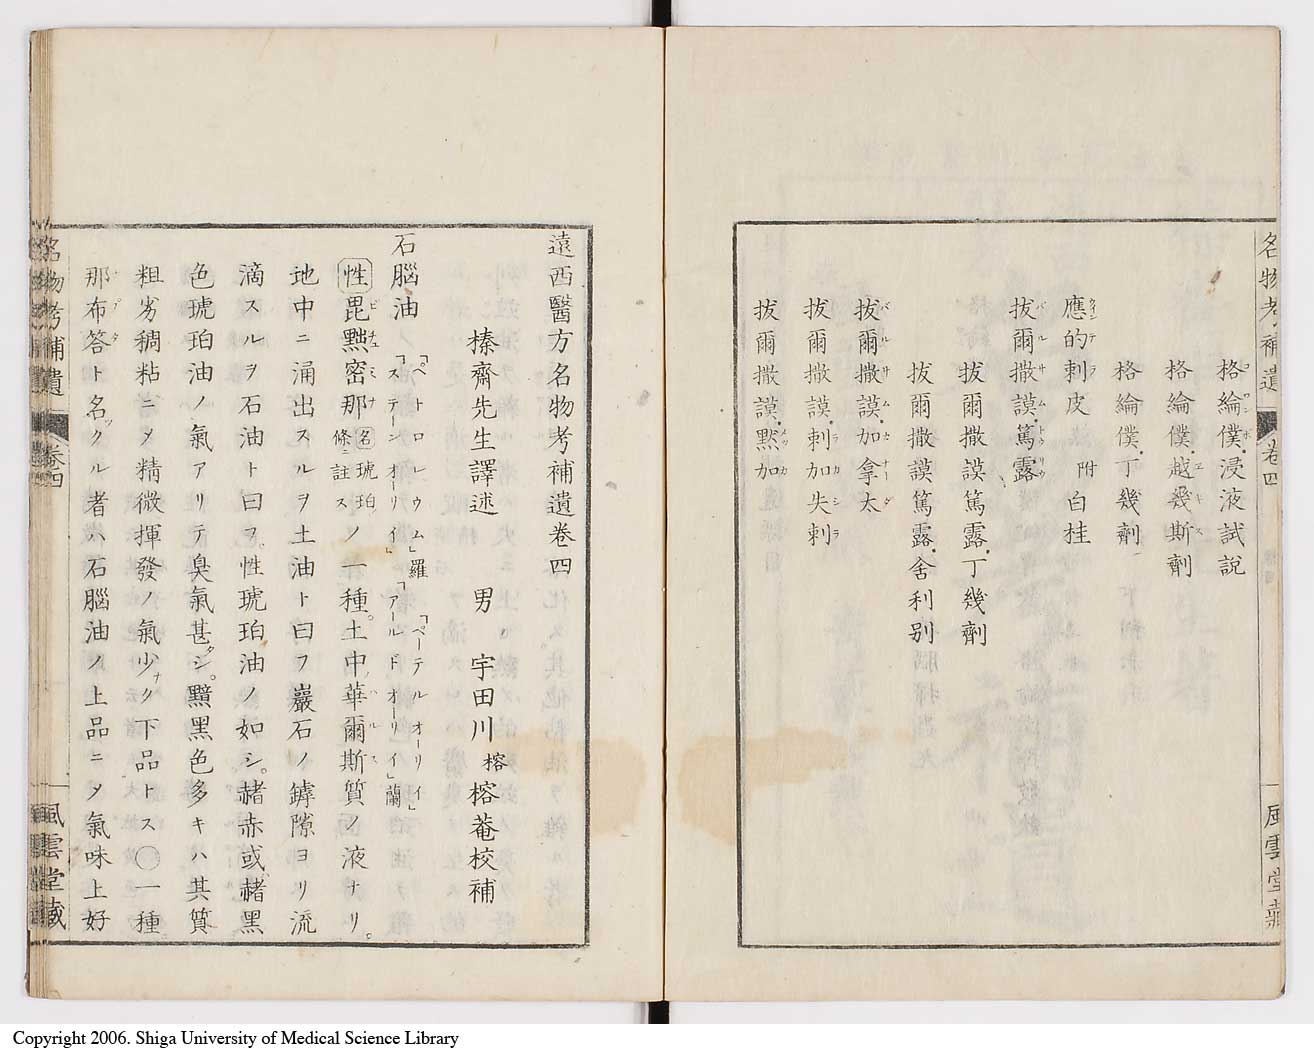 名物考補遺 卷四 一 風雲堂藏
格綸僕・浸液試説
格綸僕・越幾斯劑
格綸僕・丁幾劑
應的刺皮 附 白桂
拔爾撒謨・篤露
拔爾撒謨篤露・丁幾劑
拔爾撒謨篤露・舍利别
拔爾撒謨・加拿太
拔爾撒謨・刺加失刺
拔爾撒謨・默加
遠西醫方名物考補遺卷四
榛齋先生譯述 男 宇田川 榕 榕菴校補
石腦油 「ペトロレウム」羅 「ペーテルオーリイ」「ステーンオーリイ」「アールドオーリイ」蘭
性 毘㸃密那 名 琥珀條ニ註ス ノ一種。土中華爾斯質ノ液ナリ。
地中ニ涌出スルヲ土油ト曰フ巖石ノ罅隙ヨリ流
滴スルヲ石油ト曰ヲ。性琥珀油ノ如シ。赭赤或赭黑
色琥珀油ノ氣アリテ臭氣甚シ。黯黑色多キハ其質
粗劣稠粘ニメ精微揮發ノ氣少ナク下品トス〇一種
那布答ト名ツクル者ハ石腦油ノ上品ニメ氣味上好
名物考補遺 卷四 一 風雲堂藏
Copyright 2006. Shiga University of Medical Science Library